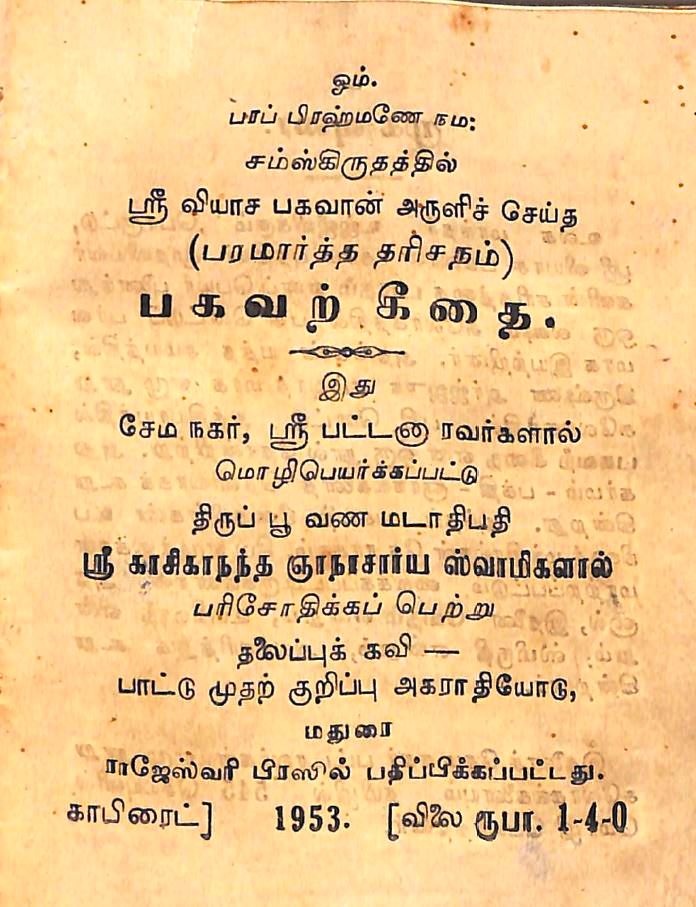 ஓம்.
பாப் பிரஹ்மணே நம:
சம்ஸ்கிருதத்தில்
ஸ்ரீ வியாச பகவான் அருளிச் செய்த
(பரமார்த்த தரிசநம்)
பகவற் கீதை.
இது
சேம நகர், ஸ்ரீ பட்டனா ரவர்களால்
மொழிபெயர்க்கப்பட்டு
திருப் பூ வண மடாதிபதி
ஸ்ரீ காசிகாநந்த ஞாநாசார்ய ஸ்வாமிகளால்
பரிசோதிக்கப் பெற்று
தலைப்புக் கவி —
பாட்டு முதற் குறிப்பு அகராதியோடு,
மதுரை
ராஜேஸ்வரி பிரஸில் பதிப்பிக்கப்பட்டது.
காபிரைட்] 1953. [விலை ரூபா. 1-4-0